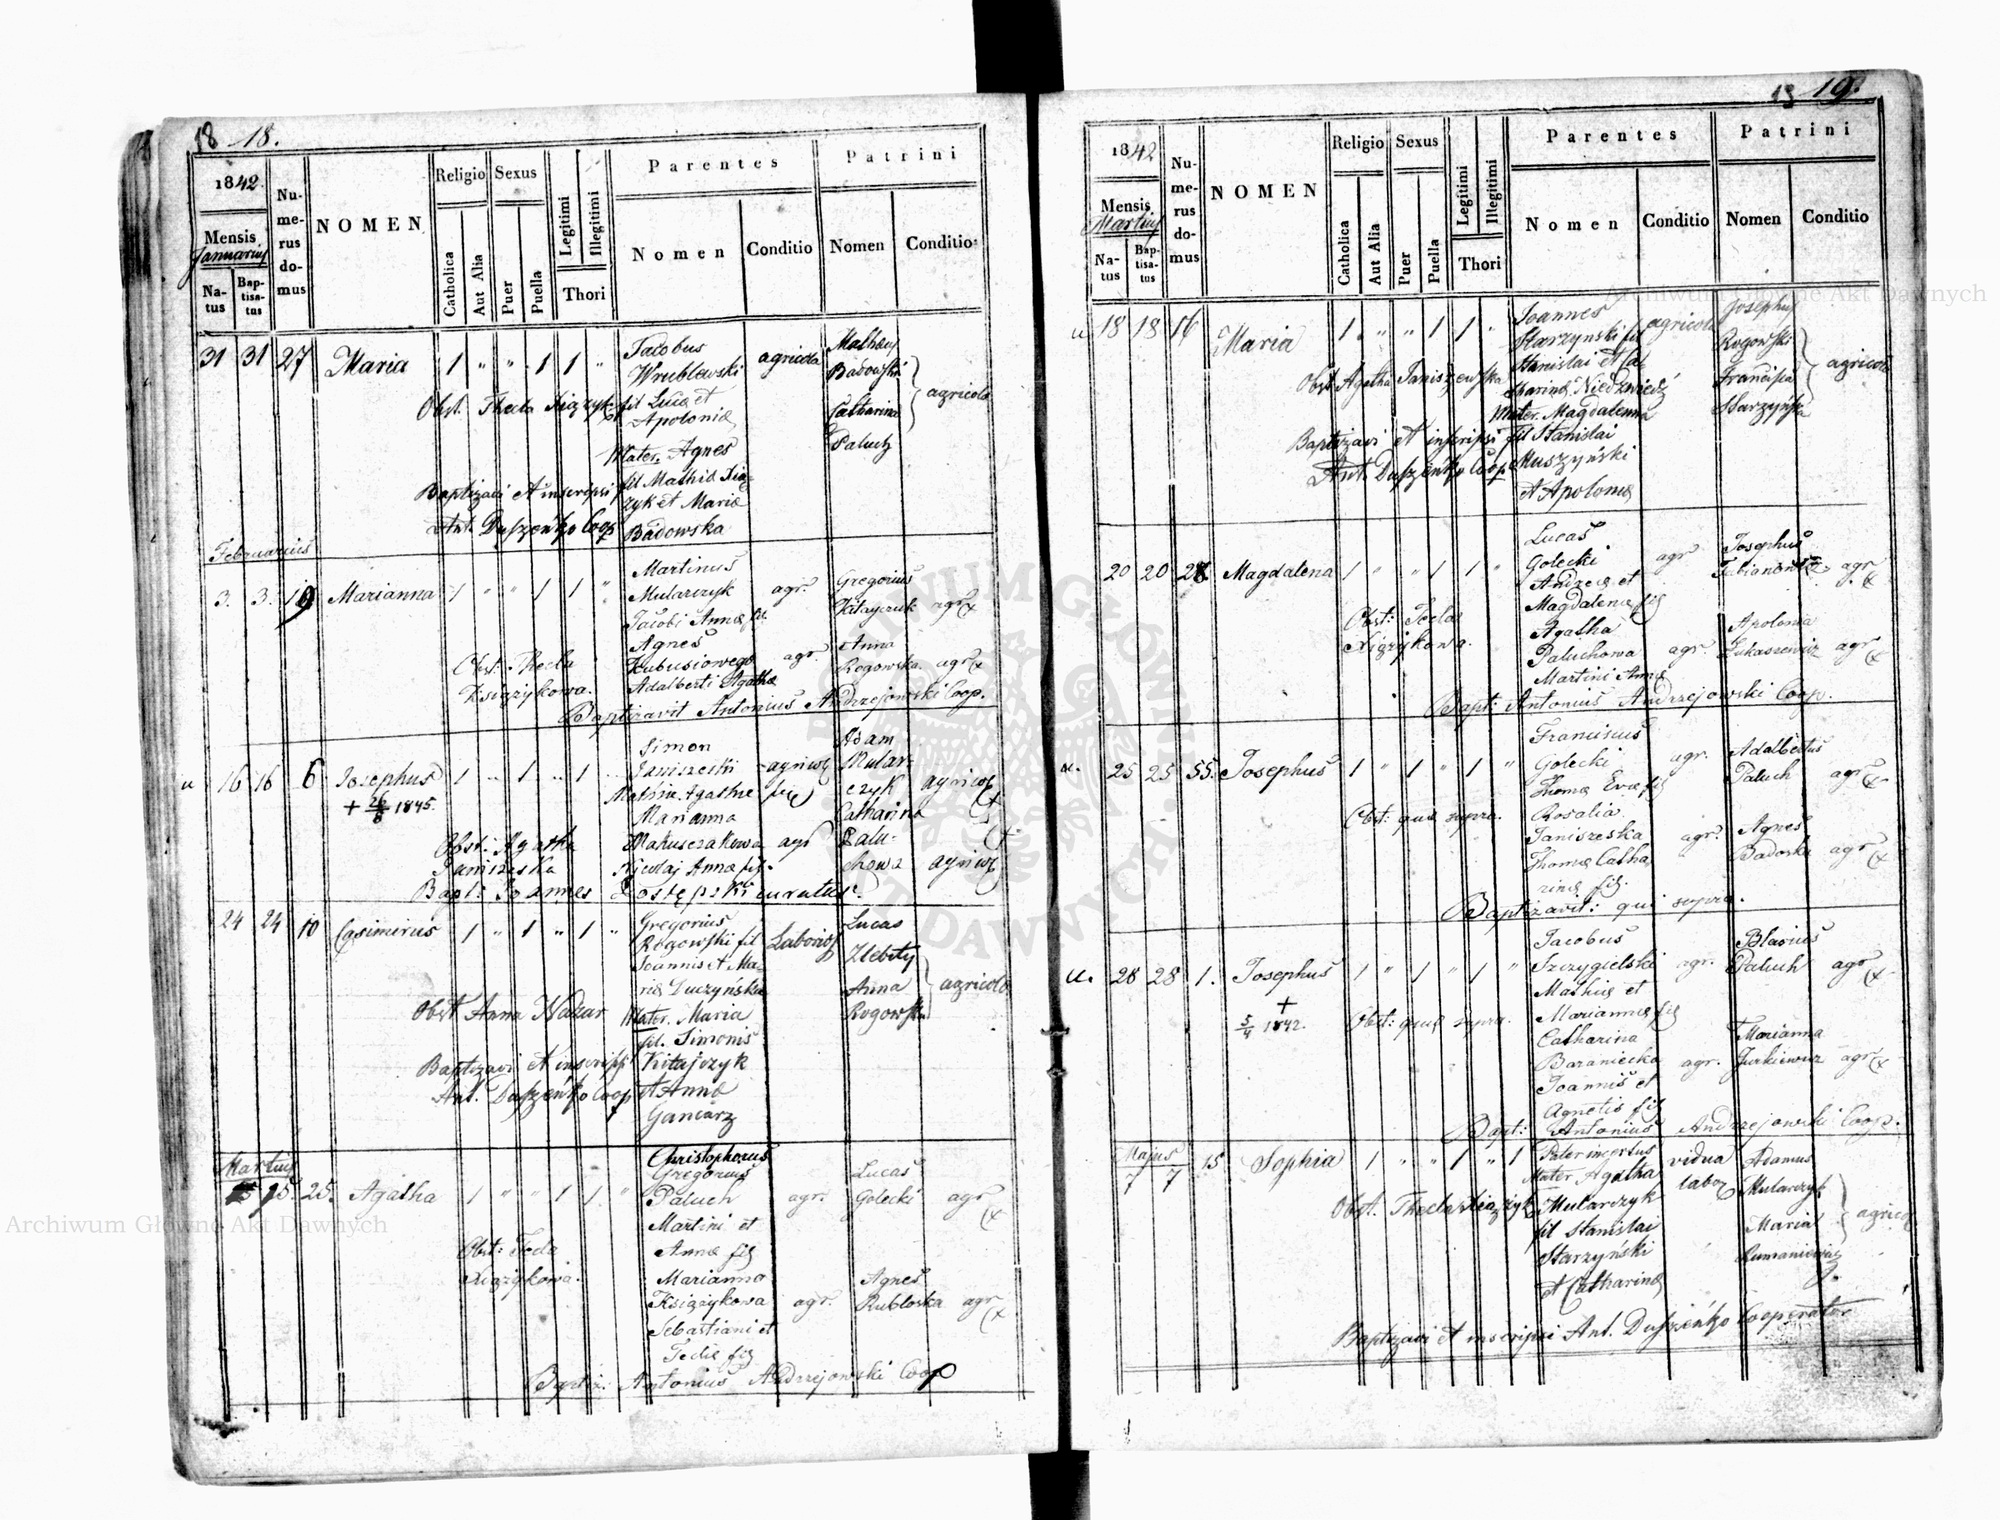 18 18.
1842.
Mensis
Januarius
Natus
Baptisatus
Numerus domus
NOMEN
Religio
Catholica
Aut Alia
Sexus
Puer
Puella
Legitimi
Illegitimi
Thori
Parentes
Nomen
Conditio
Patrini
Nomen
Conditio
31 31 27 Maria 1 " " 1 1 "
Jacobus
Wrublewski
fil Lucæ et
Apoloniæ
Mater. Agnes
fil Mathiæ Xią-
zyk et Mariæ
Badowska
agricola
Mathæus
Badowski
Catharina
Paluch
agricolæ
Obst. Thecla Xiązyk
Baptizavi et inscripsi
Ant. Duszeńko Coop
Februarius
3. 3. 19 Marianna 1 " " 1 1 "
Martinus
Mularczyk
Jacobi Annæ fil.
Agnes
Kubusiowego
Adalberti Agathæ
agr.
agr.
Gregorius
Kitajczuk
Anna
Rogowska
agr
agr
Obst: Thecla
Książykowa.
Baptizavit Antonius Andrzejowski Coop.
16 16 6 Josephus 1 " 1 " 1
+ 26/8 1845.
Simon
Janiszeski
Mathiæ Agathæ
Marianna
Makusczakowa
Nicolaj Annæ
agricol
agr
Adam
Mular-
czyk
Catharina
Palu-
chowa
agricol
agricol
Obst: Agatha
Janiszeska
Bapt: Joannes Postępski curatus.
24 24 10 Casimirus 1 " 1 " 1 "
Gregorius
Rogowski fil
Joannis et Ma-
riæ Duczyńska
Mater. Maria
fil. Simonis
Kitajczyk
et Annæ
Gancarz
Lucas
Anna
Rogowska
agricolæ
Obst Anna Nazar
Baptizavi et inscripsi
Ant. Duszeńko Coop
Martius
15. 25. Agatha 1 " " 1 1 "
Christophorus
Gregorius
Paluch
Martini et
Annæ
Marianna
Książykowa
Sebastiani et
Teclæ
agr.
agr.
Lucas
Golecki
Agnes
Rubloska
agr
agr
Obst: Tecla
Xiązykowa.
Baptiz: Antonius Andrzejowski Coop
13 19.
1842
Mensis
Martius
Natus
Baptisatus
Numerus domus
NOMEN
Religio
Catholica
Aut Alia
Sexus
Puer
Puella
Legitimi
Illegitimi
Thori
Parentes
Nomen
Conditio
Patrini
Nomen
Conditio
18 18 16 Maria 1 " " 1 1 "
Joannes
Starzynski fil
Stanislai et Ca-
tharinæ Niedzwiedź
Mater. Magdalenna
fil Stanislai
Muszyński
et Apoloniæ
agricola
Josephus
Rogowski
Francisca
Starzyńska
agricolæ
Obst Agatha Janiszewska
Baptizavi et inscripsi
Ant. Duszeńko Coop
20 20 Magdalena 1 " " 1 1 "
Lucas
Golecki
Andreæ et
Magdalenæ
Agatha
Paluchowa
Martini Annæ
agr
agr.
Josephus
Apolonia
Łukaszewicz
agr
agr
Obst: Tecla
Xiązykowa.
Bapt: Antonius Andrzejowski Coop.
25 25 55. Josephus 1 " 1 " 1 "
Franciscus
Golecki
Thomæ Evæ
Rosalia
Janiszeska
Thomæ Catha
rinæ
agr.
agr.
Adalbertus
Paluch
Agnes
Badoska
agr
agr
Obst: quæ supra.
Baptizavit: qui supra.
28 28 1. Josephus 1 " 1 " 1 "
+
5/4 1842.
Jacobus
Szczygielski
Mathiæ et
Mariannæ
Catharina
Baraniecka
Joannis et
Agnetis
agr.
agr.
Blasius
Paluch
Marianna
Jurkiewicz
agr
agr
Obst: quæ supra.
Bapt: Antonius Andrzejowski Coop.
Majus
7 7 15 Sophia 1 " " 1 " 1
Pater incertus
Mater Agatha
Mularczyk
fil Stanislai
Starzyński
et Catharinæ
vidua
Adamus
Mularczyk
Maria
agricol
Obst. Thecla Xiązyk
Baptizavi et inscripsi Ant. Duszeńko Cooperator
Archiwum Główne Akt Dawnych
Archiwum Główne Akt Dawnych
ARCHIWUM GŁÓWNE AKT DAWNYCH